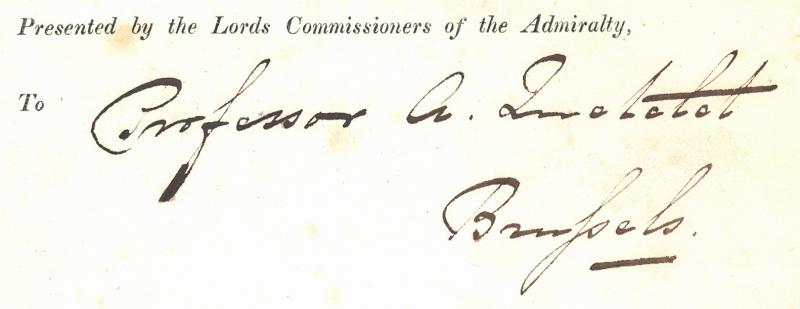 Presented by the Lords Commissioners of the Admiralty,
To Professor A. Quetelet
Brussels.